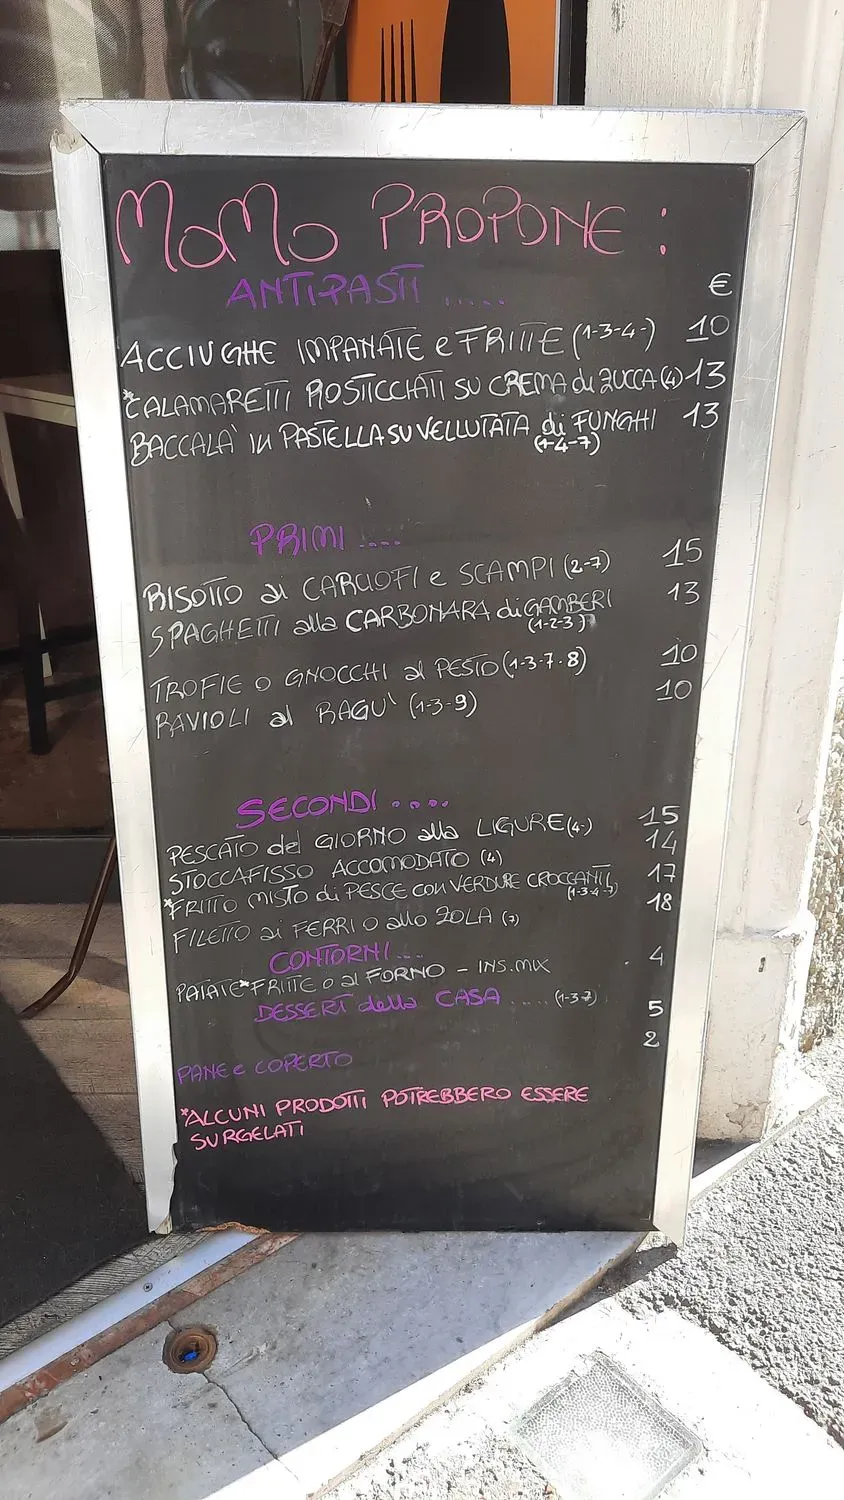 MOMO PROPONE :
ANTIPASTI ..... €
ACCIUGHE IMPANATE e FRITTE (1-3-4-) 10
*CALAMARETTI ROSTICCIATI SU CREMA di ZUCCA (4) 13
BACCALA' in PASTELLA SU VELLUTATA di FUNGHI 13
(1-4-7)
PRIMI ....
RISOTTO ai CARCIOFI e SCAMPI (2-7) 15
SPAGHETTI alla CARBONARA di GAMBERI 13
(1-2-3)
TROFIE O GNOCCHI al PESTO (1-3-7-8) 10
RAVIOLI al RAGU' (1-3-9) 10
SECONDI ....
PESCATO del GIORNO alla LIGURE (4-) 15
STOCCAFISSO ACCOMODATO (4) 14
*FRITTO MISTO di PESCE con VERDURE CROCCANTI 17
(1-3-4-7)
FILETTO ai FERRI O allo ZOLA (7) 18
CONTORNI ...
PATATE *FRITTE O al FORNO - INS.MIX 4
DESSERT della CASA .... (1-3-7) 5
PANE e COPERTO 2
*ALCUNI PRODOTTI POTREBBERO ESSERE
SURGELATI